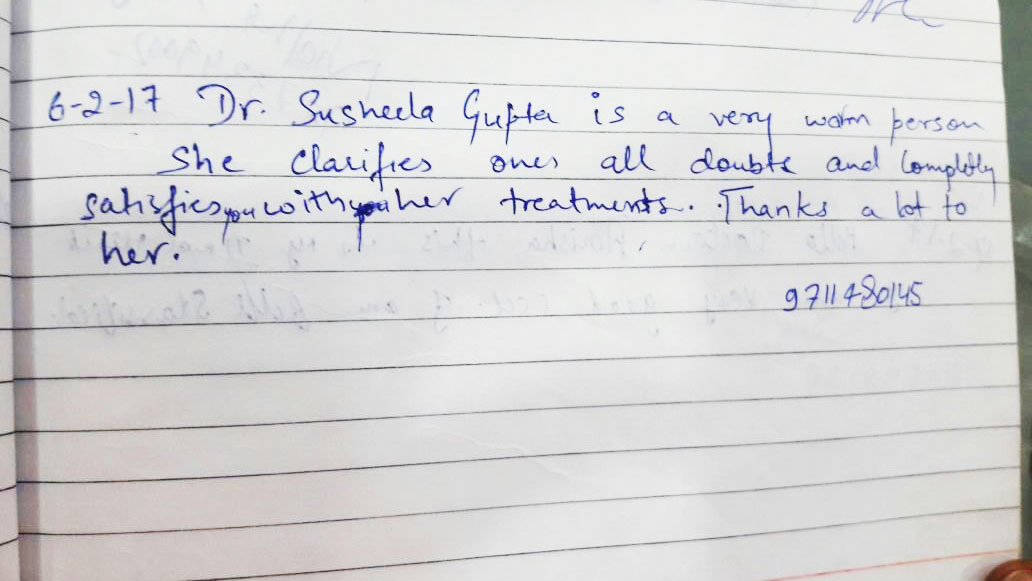 6-2-17 Dr. Susheela Gupta is a very warm person
She clarifies ones all doubts and completly
satisfies you with her treatments. Thanks a lot to
her.
9711480145